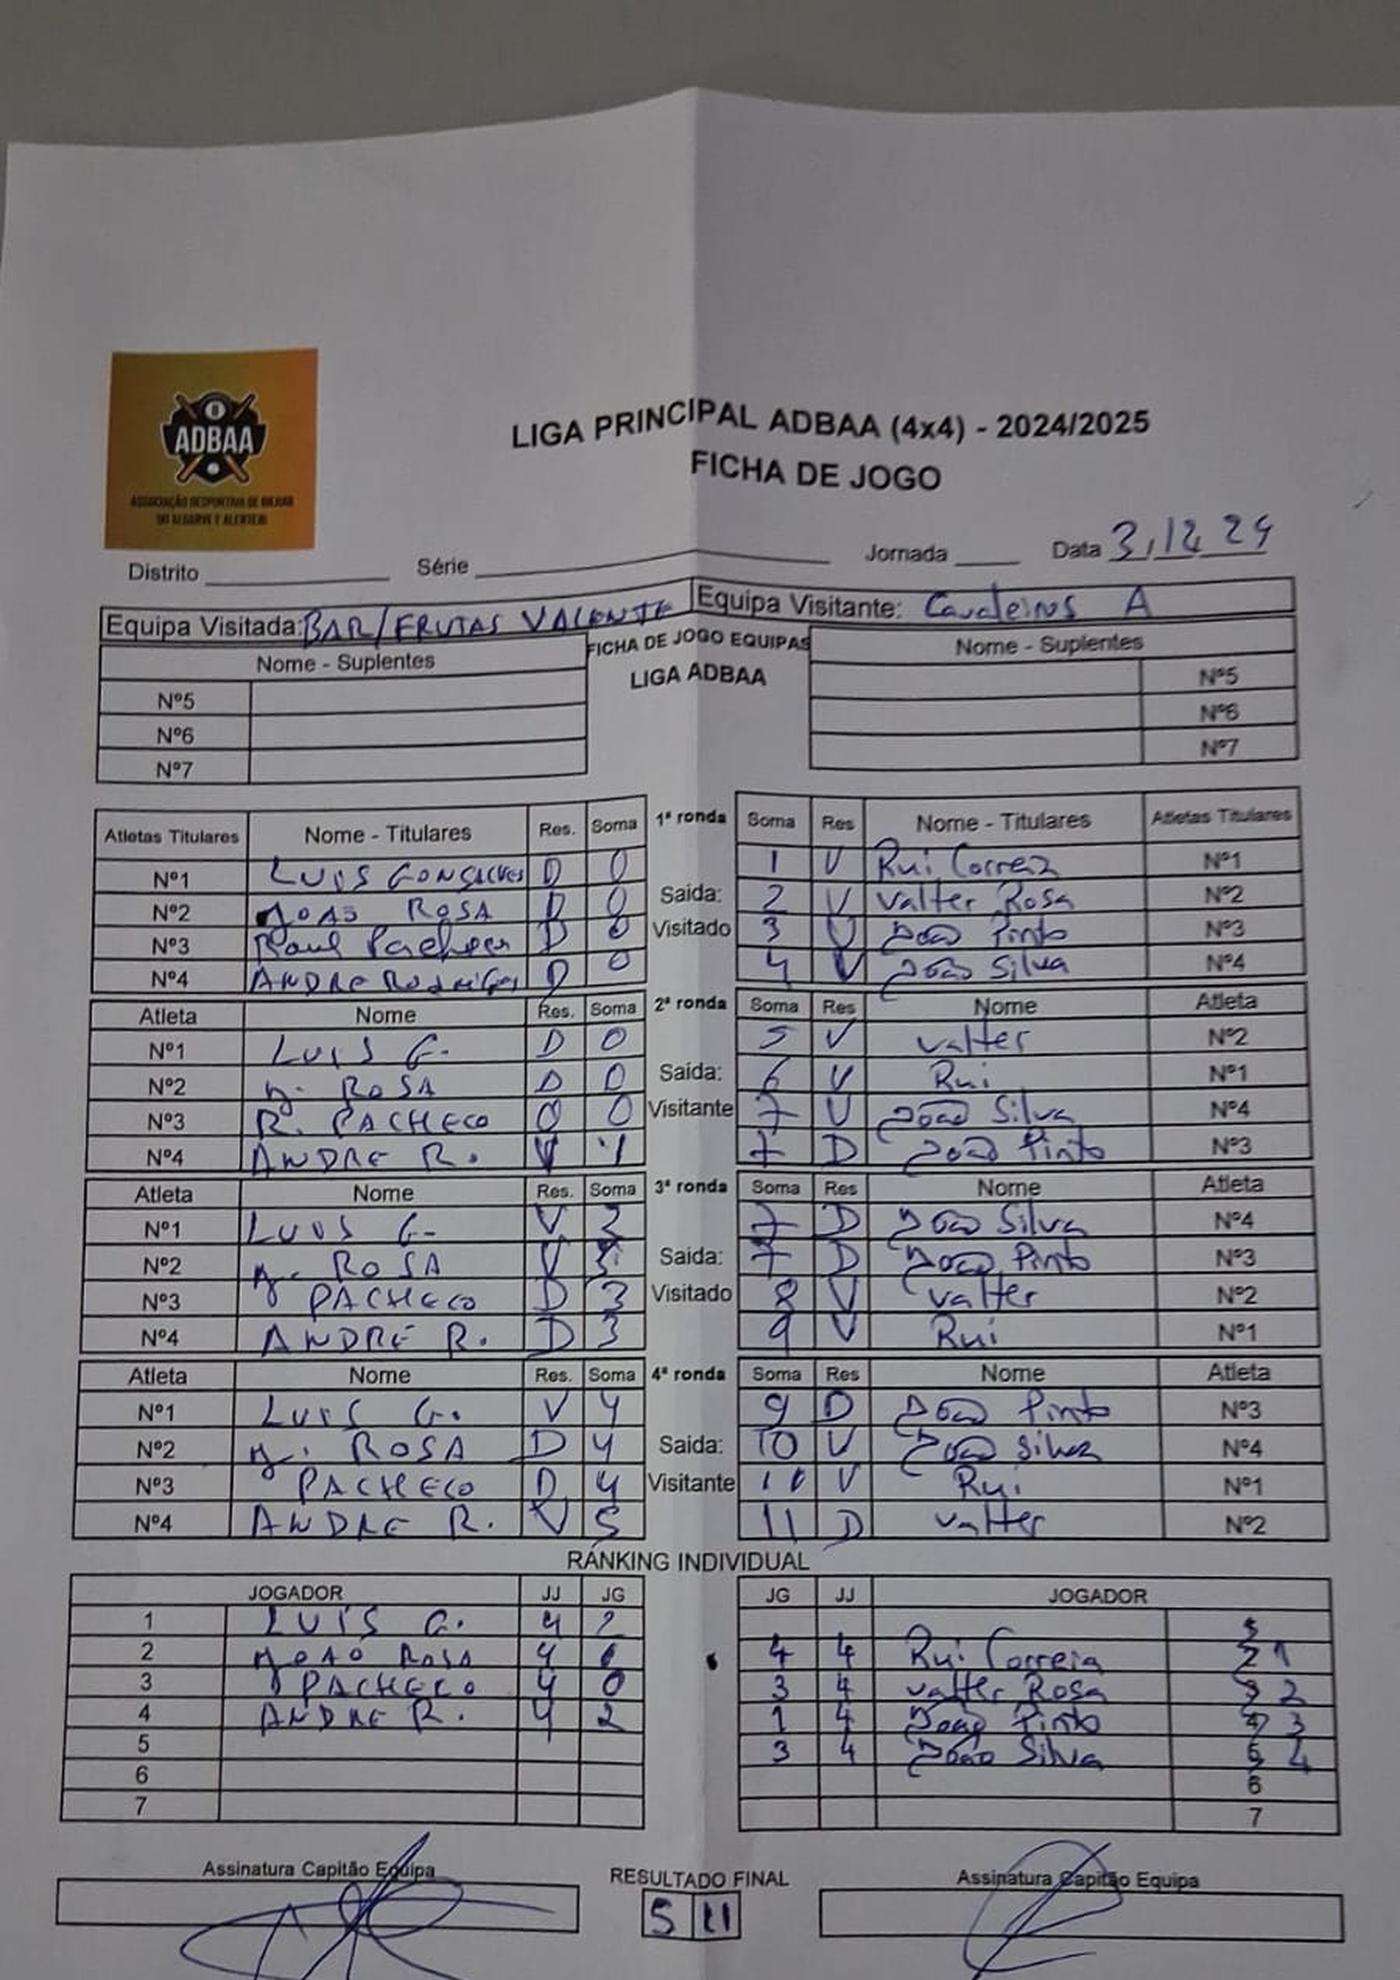 ADBAA
ASSOCIAÇÃO DESPORTIVA DE BILHAR
DO ALGARVE E ALENTEJO
LIGA PRINCIPAL ADBAA (4x4) - 2024/2025
FICHA DE JOGO
Distrito Série Jornada Data 3,12,24
Equipa Visitada: BAR/FRUTAS VALENTE Equipa Visitante: Cavaleiros A
Nome - Suplentes FICHA DE JOGO EQUIPAS Nome - Suplentes
LIGA ADBAA
Nº5 Nº5
Nº6 Nº6
Nº7 Nº7
Atletas Titulares Nome - Titulares Res. Soma 1ª ronda Soma Res Nome - Titulares Atletas Titulares
Nº1 LUIS GONSALVES D 0 1 V Rui Correia Nº1
Nº2 JOAO ROSA D 0 Saida: 2 V Valter Rosa Nº2
Nº3 Raul Pacheco D 0 Visitado 3 V João Pinto Nº3
Nº4 ANDRE Rodrigues D 0 4 V João Silva Nº4
Atleta Nome Res. Soma 2ª ronda Soma Res Nome Atleta
Nº1 LUIS G. D 0 5 V Valter Nº2
Nº2 J. ROSA D 0 Saida: 6 V Rui Nº1
Nº3 R. PACHECO D 0 Visitante 7 V João Silva Nº4
Nº4 ANDRE R. V 1 7 D João Pinto Nº3
Atleta Nome Res. Soma 3ª ronda Soma Res Nome Atleta
Nº1 LUIS G. V 2 7 D João Silva Nº4
Nº2 J. ROSA V 3 Saida: 7 D João Pinto Nº3
Nº3 PACHECO D 3 Visitado 8 V Valter Nº2
Nº4 ANDRE R. D 3 9 V Rui Nº1
Atleta Nome Res. Soma 4ª ronda Soma Res Nome Atleta
Nº1 LUIS G. V 4 9 D João Pinto Nº3
Nº2 J. ROSA D 4 Saida: 10 V João Silva Nº4
Nº3 PACHECO D 4 Visitante 11 V Rui Nº1
Nº4 ANDRE R. V 5 11 D Valter Nº2
RANKING INDIVIDUAL
JOGADOR JJ JG JG JJ JOGADOR
1 LUIS G. 4 2
2 JOAO ROSA 4 1 4 4 Rui Correia 2 1
3 PACHECO 4 0 3 4 Valter Rosa 3 2
4 ANDRE R. 4 2 1 4 João Pinto 4 3
5 3 4 João Silva 5 4
6 6
7 7
Assinatura Capitão Equipa RESULTADO FINAL Assinatura Capitão Equipa
5 11